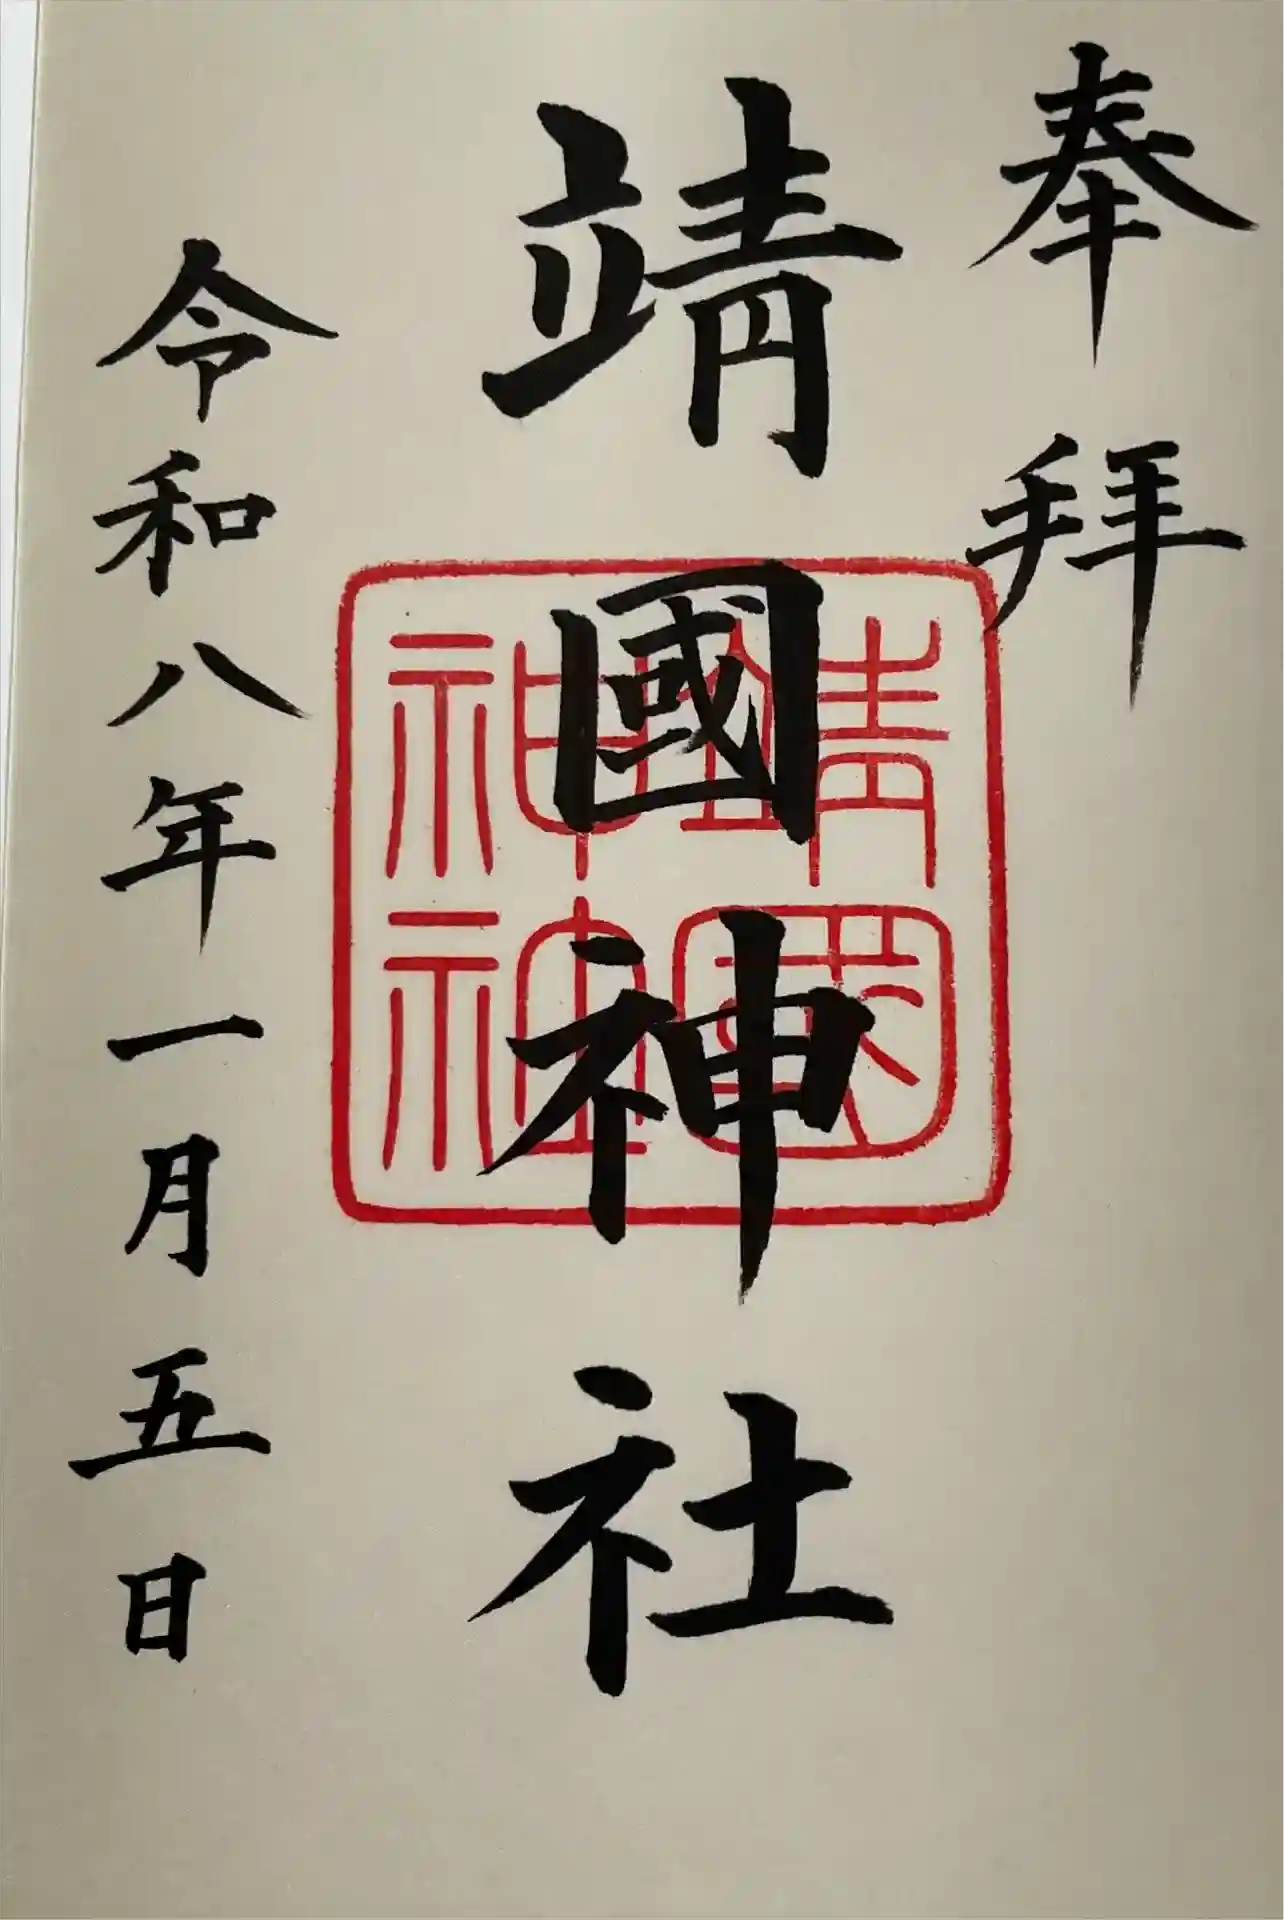 奉拜
靖國神社
令和八年一月五日
靖國神社